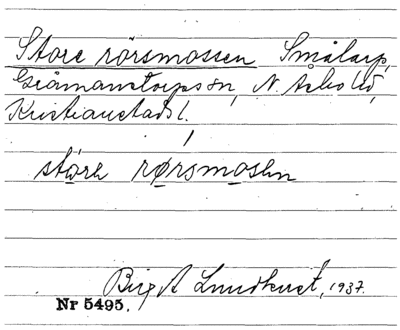 Store rörsmossen Smålarp,
Gråmanstorps sn, N. Åsbo hd,
Kristianstads l.
störe rørsmosen
Birgit Lundkvist, 1937.
Nr 5495.